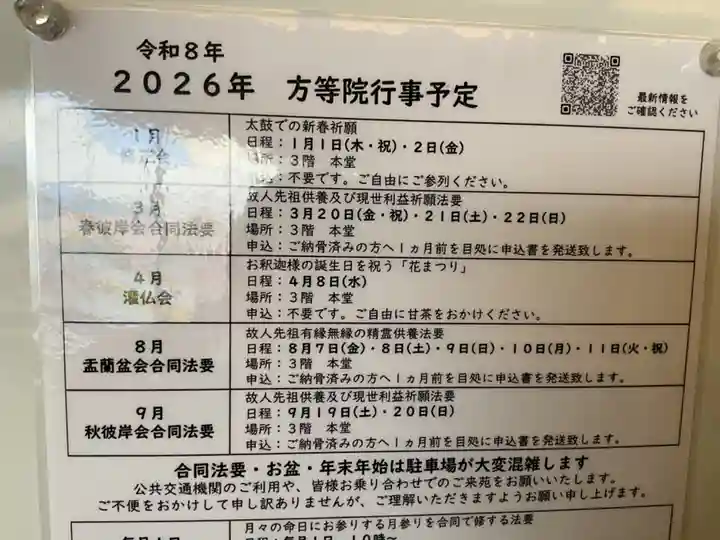 令和8年
2026年 方等院行事予定
最新情報を
ご確認ください
1月
太鼓での新春祈願
日程：1月1日(木・祝)・2日(金)
場所：3階 本堂
不要です。ご自由にご参列ください。
3月
春彼岸会合同法要
故人先祖供養及び現世利益祈願法要
日程：3月20日(金・祝)・21日(土)・22日(日)
場所：3階 本堂
申込：ご納骨済みの方へ1ヵ月前を目処に申込書を発送致します。
4月
灌仏会
お釈迦様の誕生日を祝う「花まつり」
日程：4月8日(水)
場所：3階 本堂
申込：不要です。ご自由に甘茶をおかけください。
8月
盂蘭盆会合同法要
故人先祖有縁無縁の精霊供養法要
日程：8月7日(金)・8日(土)・9日(日)・10日(月)・11日(火・祝)
場所：3階 本堂
申込：ご納骨済みの方へ1ヵ月前を目処に申込書を発送致します。
9月
秋彼岸会合同法要
故人先祖供養及び現世利益祈願法要
日程：9月19日(土)・20日(日)
場所：3階 本堂
申込：ご納骨済みの方へ1ヵ月前を目処に申込書を発送致します。
合同法要・お盆・年末年始は駐車場が大変混雑します
公共交通機関のご利用や、皆様お乗り合わせでのご来苑をお願いいたします。
ご不便をおかけして申し訳ありませんが、ご理解いただきますようお願い申し上げます。
毎月1日
月々の命日にお参りする月参りを合同で修する法要
日程：毎月1日 10時～